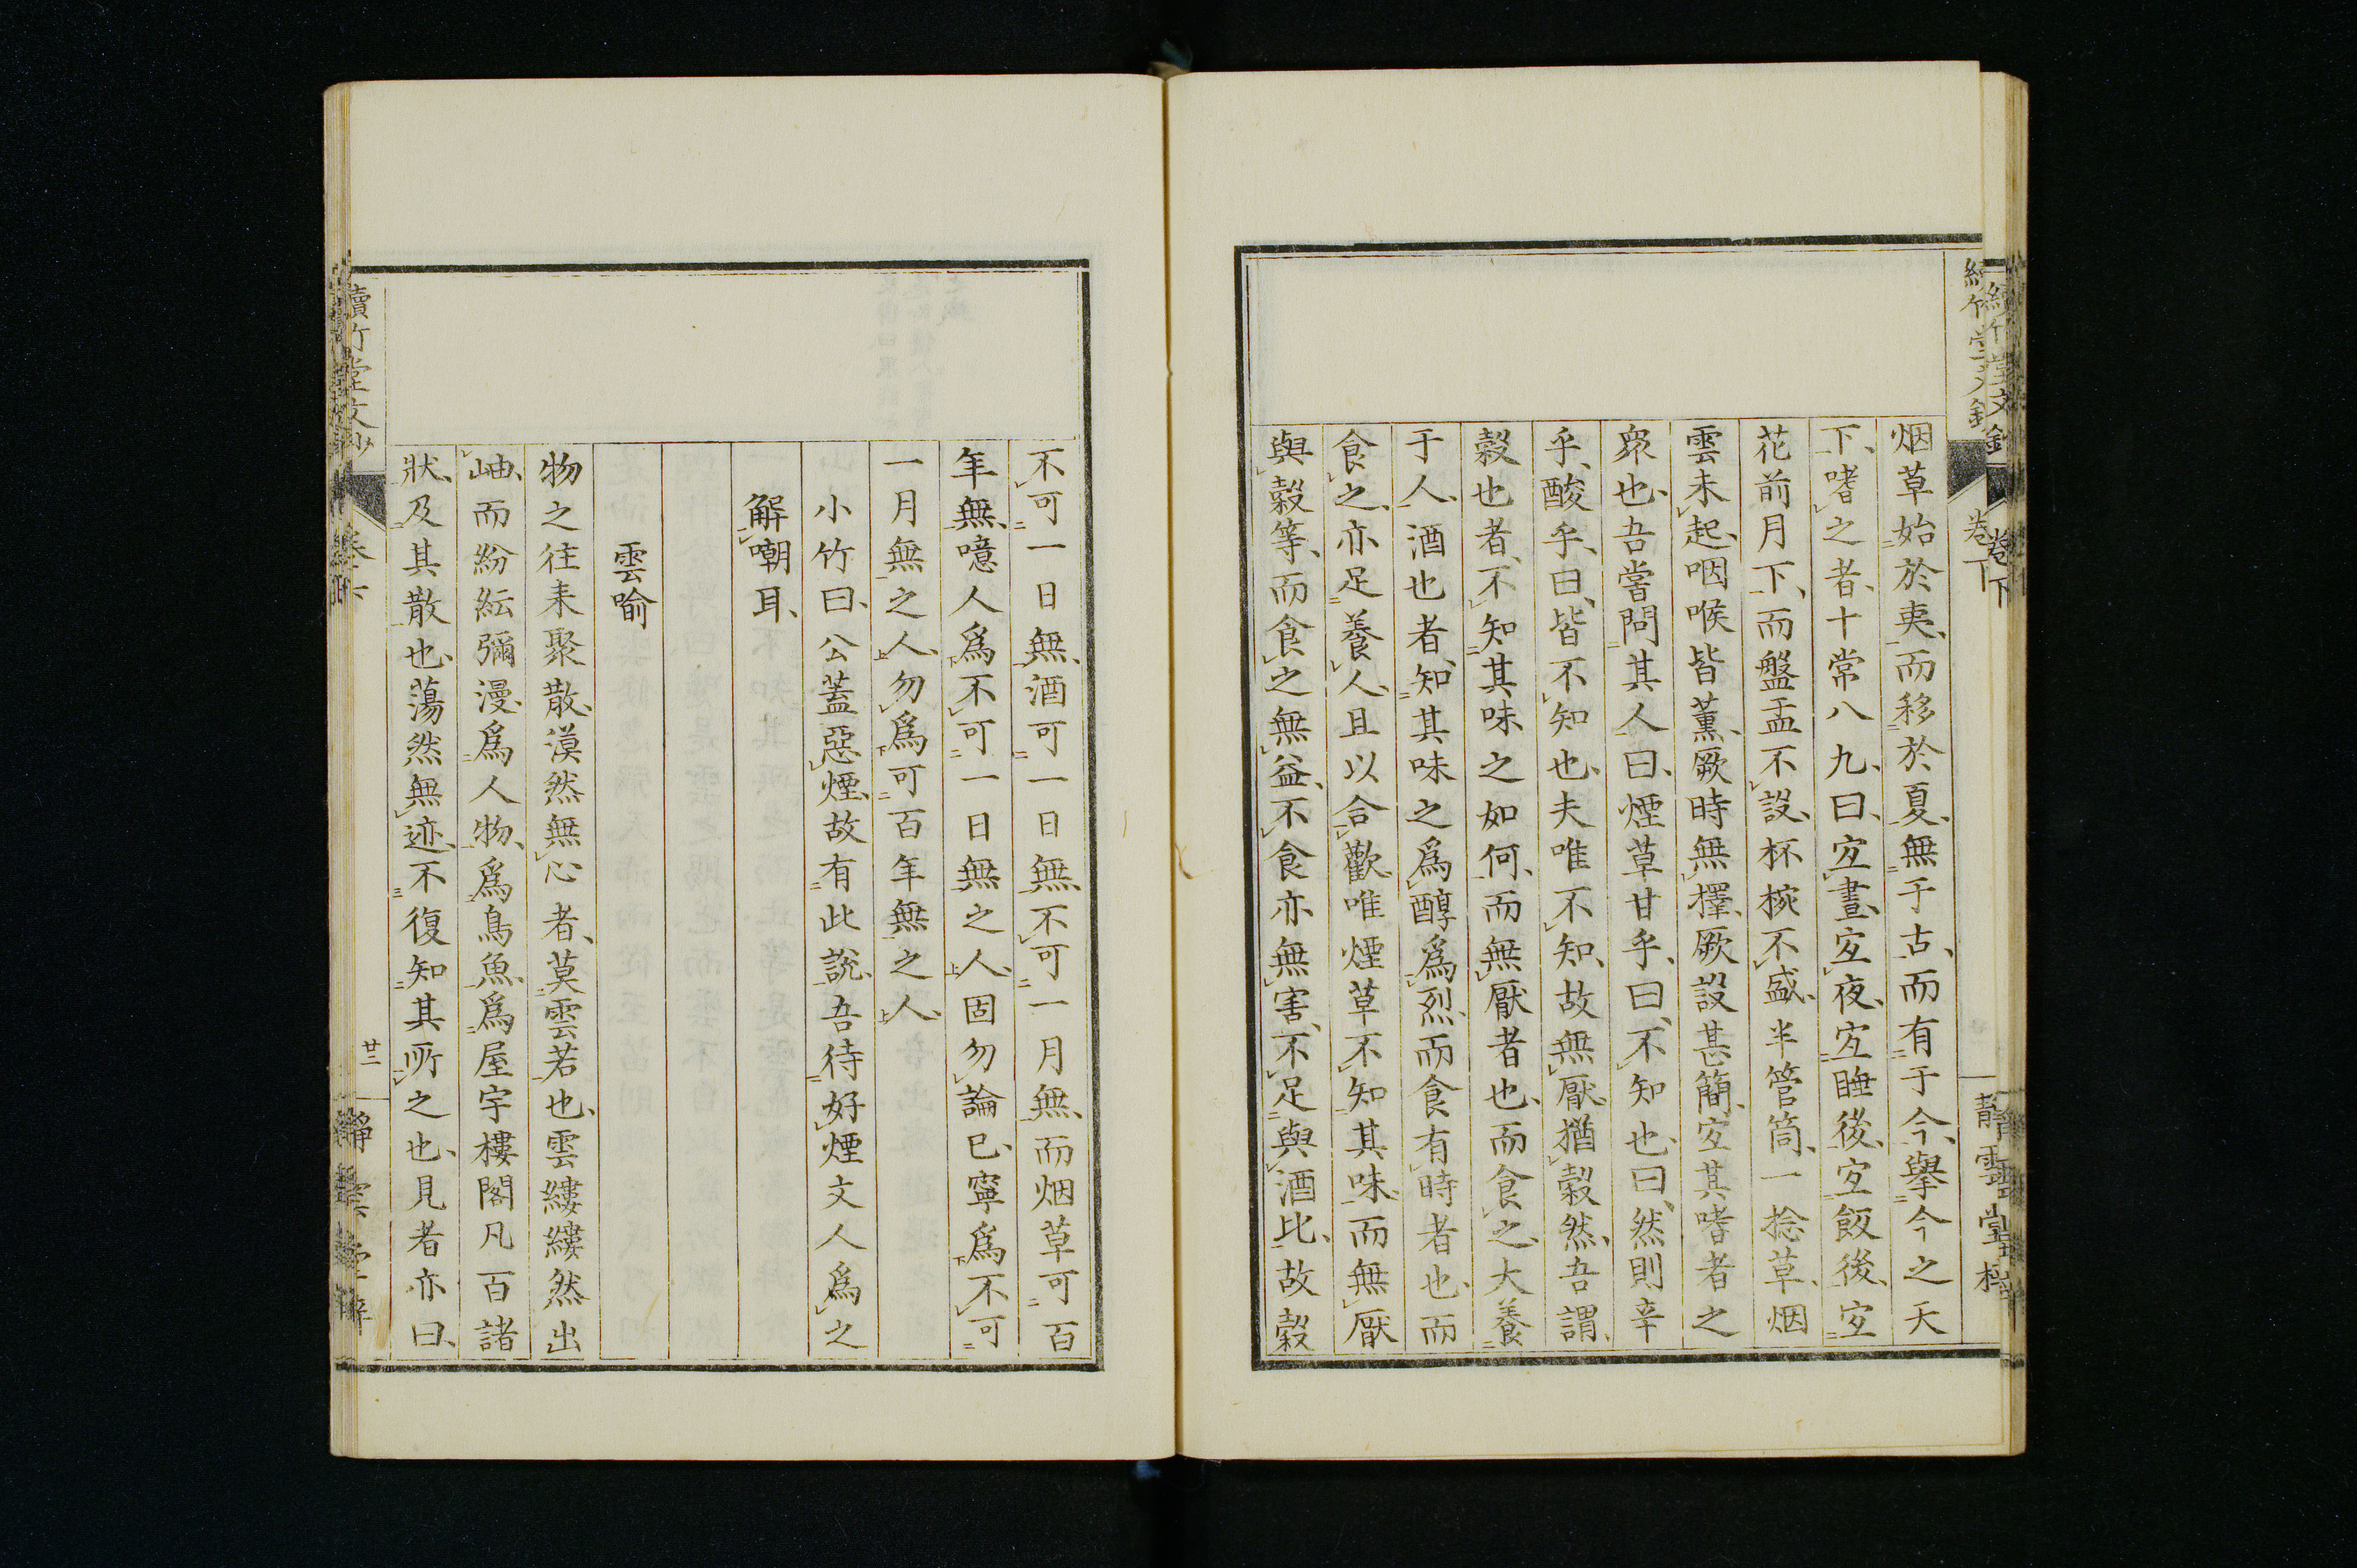 烟草始於夷、而移於夏、無于古、而有于今、擧今之天
下、嗜之者、十常八九、曰、宜晝、宜夜、宜睡後、宜飯後、宜
花前月下、而盤盂不設、杯椀不盛、半管筒、一捻草、烟
雲未起、咽喉皆薰、厥時無擇、厥設甚簡、宜其嗜者之
衆也、吾嘗問其人曰、煙草甘乎、曰、不知也、曰、然則辛
乎、酸乎、曰、皆不知也、夫唯不知、故無厭、猶穀然、吾謂、
穀也者、不知其味之如何、而無厭者也、而食之、大養
于人、酒也者、知其味之爲醇爲烈、而食有時者也、而
食之、亦足養人、且以合歡、唯煙草不知其味、而無厭
與穀等、而食之無益、不食亦無害、不足與酒比、故穀
不可一日無、酒可一日無、不可一月無、而烟草可百
年無、噫人爲不可一日無之人、固勿論已、寧爲不可
一月無之人、勿爲可百年無之人、
小竹曰、公蓋惡煙、故有此說、吾待好煙文人爲之
解嘲耳、
雲喻
物之往来聚散、漠然無心者、莫雲若也、雲縷縷然出
岫、而紛紜彌漫、爲人物、爲鳥魚、爲屋宇樓閣凡百諸
狀、及其散也、蕩然無迹、不復知其所之也、見者亦曰、
續竹堂文鈔
卷下
廿二
靜雲堂梓